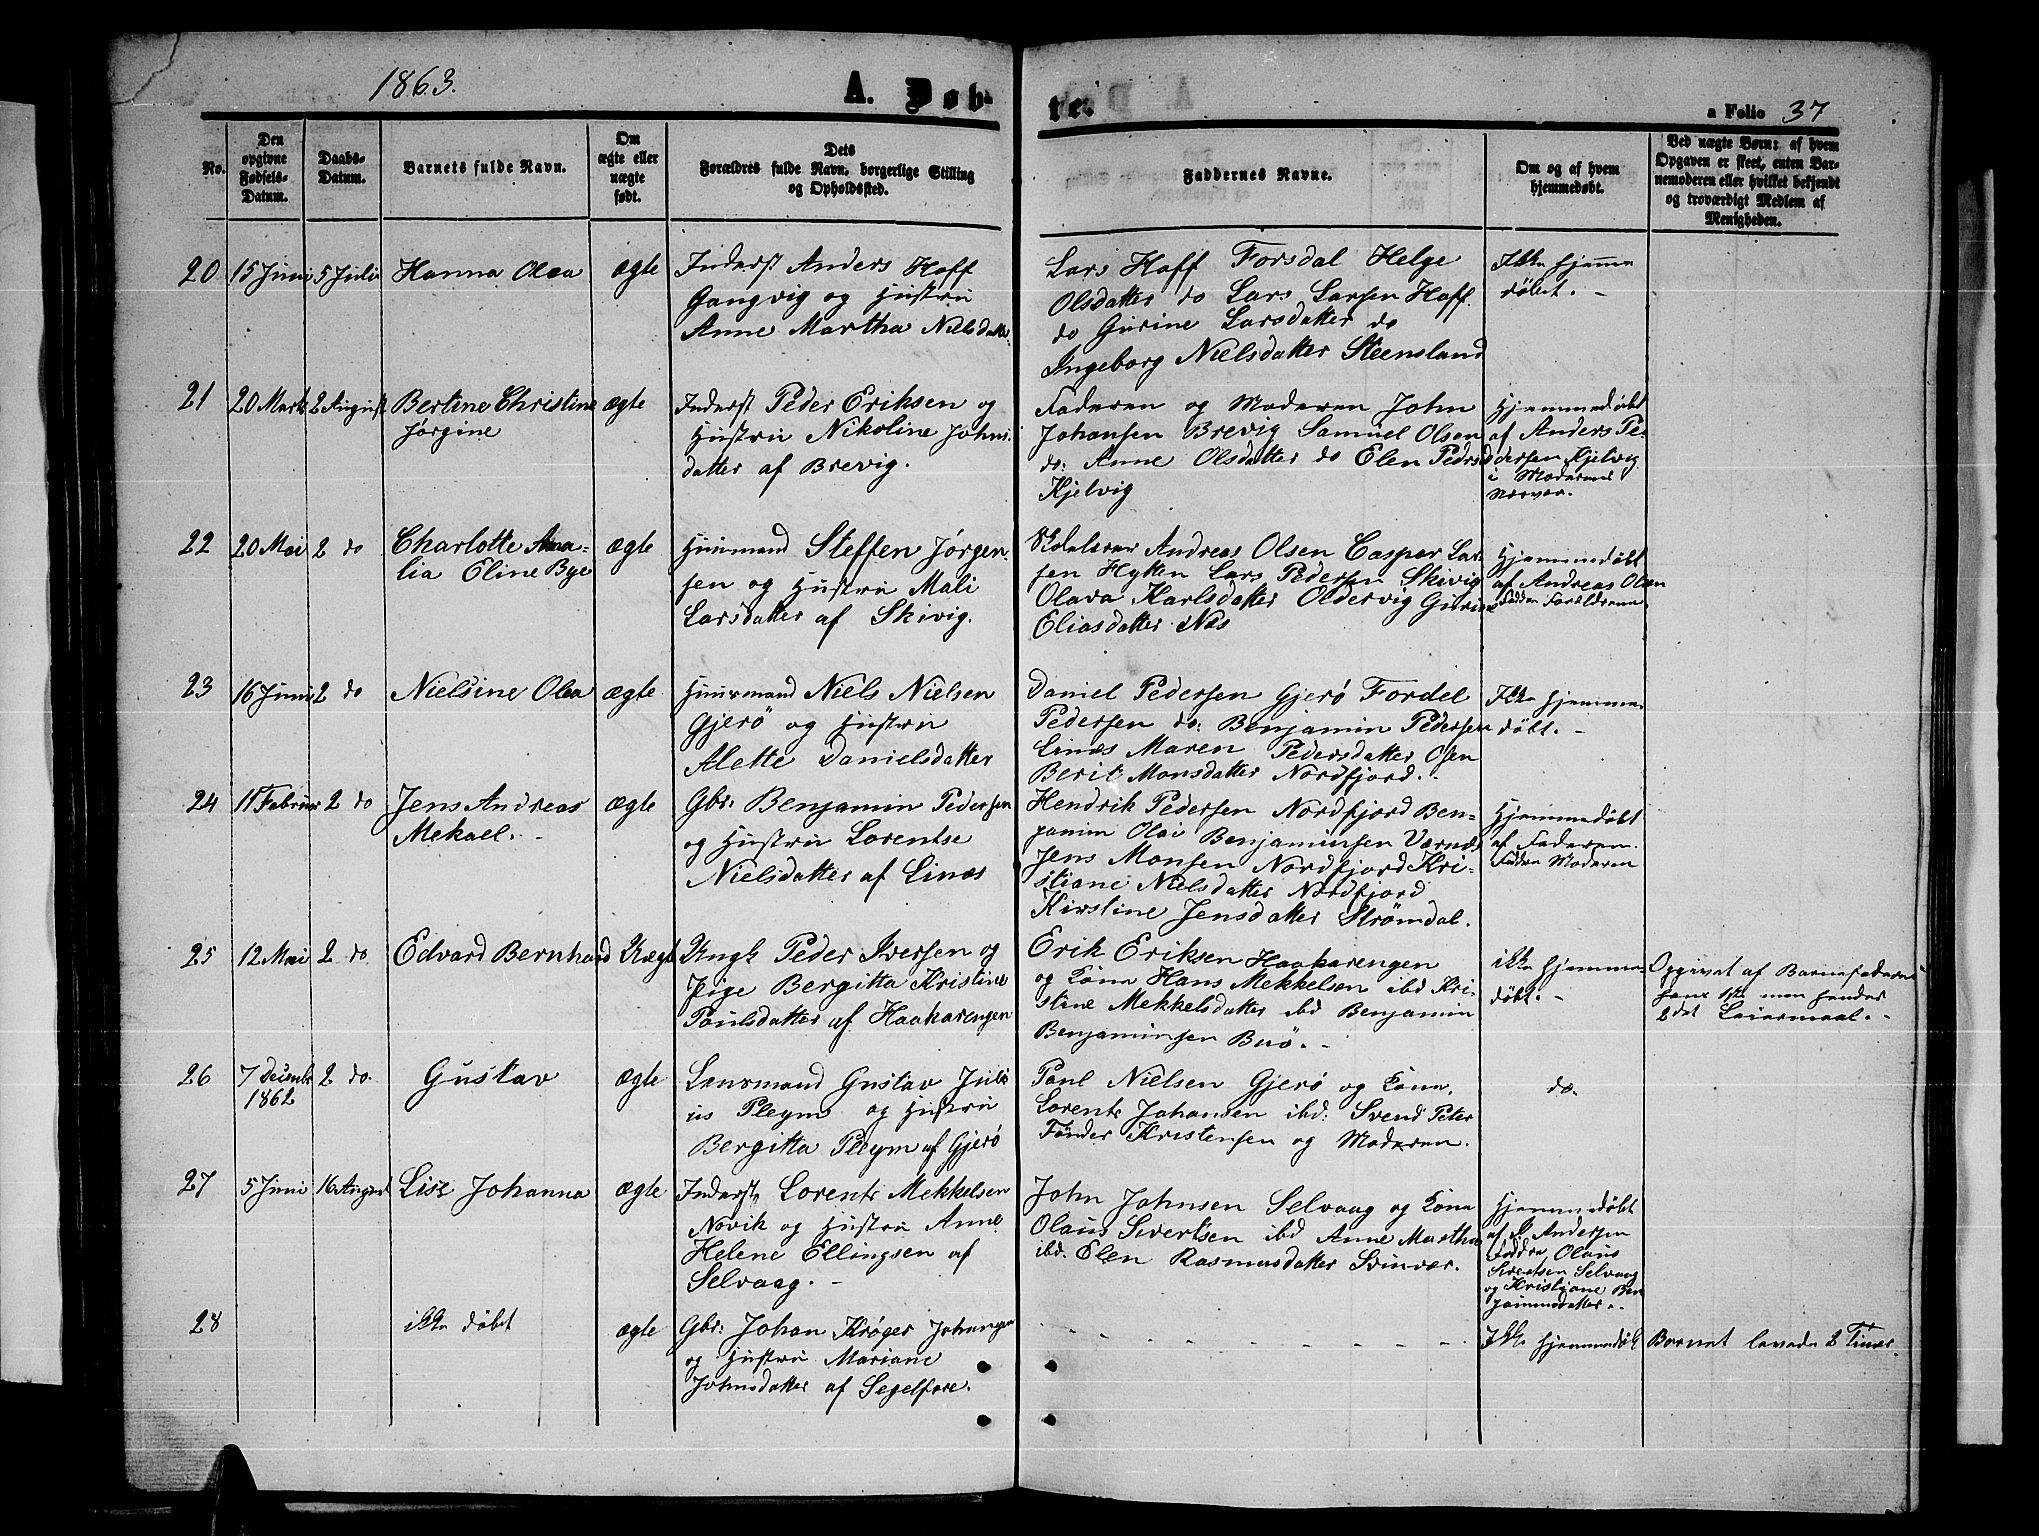 1863.
A. Døb-
te.
a Folio 37
No.
Den
opgivne
Fødsels-
Datum.
Daabs-
Datum.
Barnets fulde Navn.
Om
ægte eller
uægte
født.
Dets
Forældres fulde Navn, borgerlige Stilling
og Opholdssted.
Faddernes Navne.
Om og af hvem
hjemmedøbt.
Ved uægte Børn: af hvem
Opgaven er skeet, enten Bar-
nemoderen eller hvilket bekjendt
og troværdigt Medlem af
Menigheden.
20 15 Juni 5 Juli Hanna Olea ægte
Inderst Anders Hoff
Gangvig og Hustru
Anne Martha Nielsdatter.
Lars Hoff Forsdal Helge
Olsdatter do Lars Larsen Hoff
do Gurine Larsdatter do
Ingeborg Nielsdatter Steensland
Ikke hjemme
døbt. -
21 20 Marts 2 August Bertine Christine
Jørgine
ægte
Inderst Peder Eriksen og
Hustru Nikoline Johns-
datter af Brevig.
Faderen og Moderen John
Johansen Brevig Samuel Olsen
do: Anne Olsdatter do Elen Pedersd
Kjelvig
Hjemmedøbt
af Anders Pe-
dersen Kjelvig
i Moderens
Nærvær.
22 20 Mai 2 do Charlotte Ama-
lia Eline Bye
ægte
Huusmand Steffen Jørgen
sen og Hustru Mali
Larsdatter af Skivig.
Skolelærer Andreas Olsen Caspar Lar
sen Hytten Lars Pedersen Skivig
Olava Karlsdatter Oldervig Gurine
Eliasdatter Næs
Hjemmedøbt
af Andreas Olsen
Fadder Forældrene
23 16 Juni 2 do Nielsine Olea ægte
Huusmand Niels Nielsen
Gjerö og Hustru
Alette Danielsdatter
Daniel Pedersen Gjerö Fordel
Pedersen do: Benjamin Pedersen
Linæs Maren Pedersdatter Osen
Berit Monsdatter Nordfjord. -
Ikke hjemme-
døbt. -
24 11 Februar 2 do Jens Andreas
Mekael. -
ægte
Gbr: Benjamin Pedersen
og Hustru Lorentse
Nielsdatter af Linæs
Hendrik Pedersen Nordfjord Ben-
jamin Olai Benjaminsen Værnæs
Jens Monsen Nordfjord Kri-
stiane Nielsdatter Nordfjord
Kirstine Jensdatter Strömdal.
Hjemmedøbt
af Faderen.
Fadder Moderen
25 12 Mai 2 do Edvard Bernhard Uægte
Ungk Peder Iversen og
Pige Bergitta Kristine
Poulsdatter af Haakarengen
Erik Eriksen Haakarengen
og Kone Hans Mekkelsen ibd Kri-
stine Mekkelsdatter ibd Benjamin
Benjaminsen Buö. -
ikke hjemme-
døbt. -
Opgivet af Barnefaderen
hans 1ste men hendes
2det Leiermaal. -
26 7 Decembr
1862
2 do. Gustav ægte
Lensmand Gustav Juli
us Pleym og Hustru
Bergitta Pleym af Gjerö
Paul Nielsen Gjerö og Kone,
Lorents Johansen ibd: Svend Peter
Tönder Kristensen og Moderen.
do.
27 5 Juni 16 August Lise Johanna ægte
Inderst, Lorents Mekkelsen
Novik og Hustru Anne
Helene Ellingsen af
Selvaag. -
John Johnsen Selvaag og Kone
Olaus Sivertsen ibd Anne Martha
ibd. Elen Rasmusdatter Svinvær.
Hjemmedøbt
af P. Andersen
Faddre, Olaus
Sivertsen Selvaag
og Kristjane Ben
jaminsdatter. -
28 ikke døbt ægte
Gbr: Johan Krøger Johnsen
og Hustru Mariane
Johnsdatter af Segelfore.
- - - - - - - -
Ikke hjemmedøbt
Barnet levede 2 Timer.